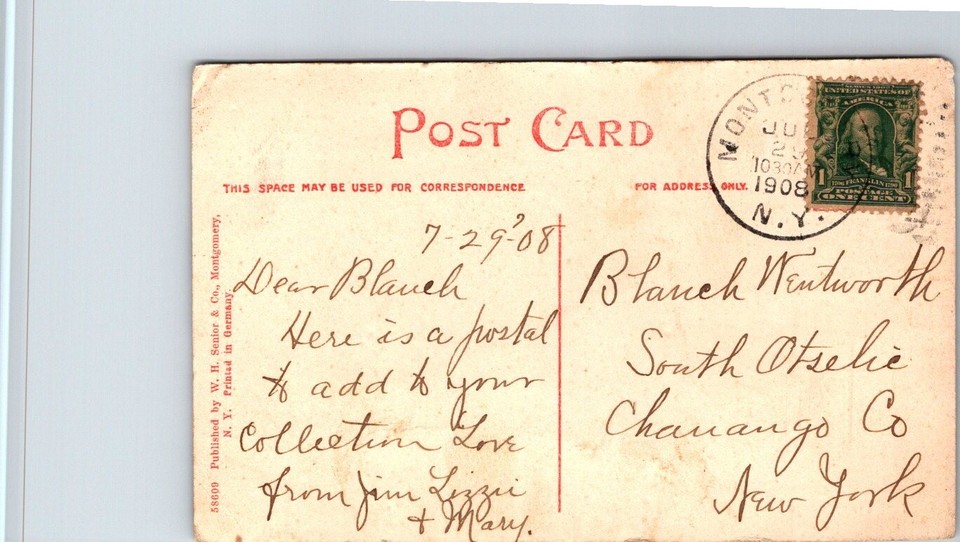 POST CARD
THIS SPACE MAY BE USED FOR CORRESPONDENCE
FOR ADDRESS ONLY.
58609 Published by W. H. Senior & Co., Montgomery,
N. Y. Printed in Germany.
7-29-'08
Dear Blanch
Here is a postal
to add to your
Collection Love
from Jim Lizzie
+ Mary.
1908
N.Y.
SERIES 1902
UNITED STATES OF
AMERICA
FRANKLIN
1 POSTAGE 1
ONE CENT
Blanch Wentworth
South Otselic
Chanango Co
New York